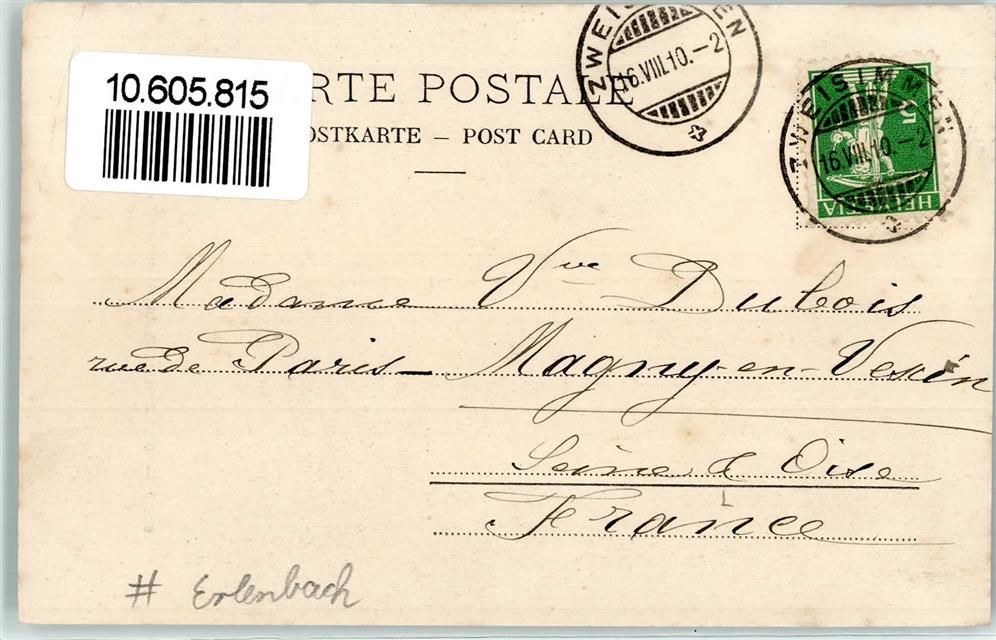 10.605.815
RTE POSTALE
OSTKARTE – POST CARD
ZWEISIMMEN
16.VIII.10.–2
ZWEISIMMEN
16.VIII.10.–2
5
HELVETIA
Madame Vve Dubois
rue de Paris – Magny-en-Vexin
Seine & Oise
France
# Erlenbach